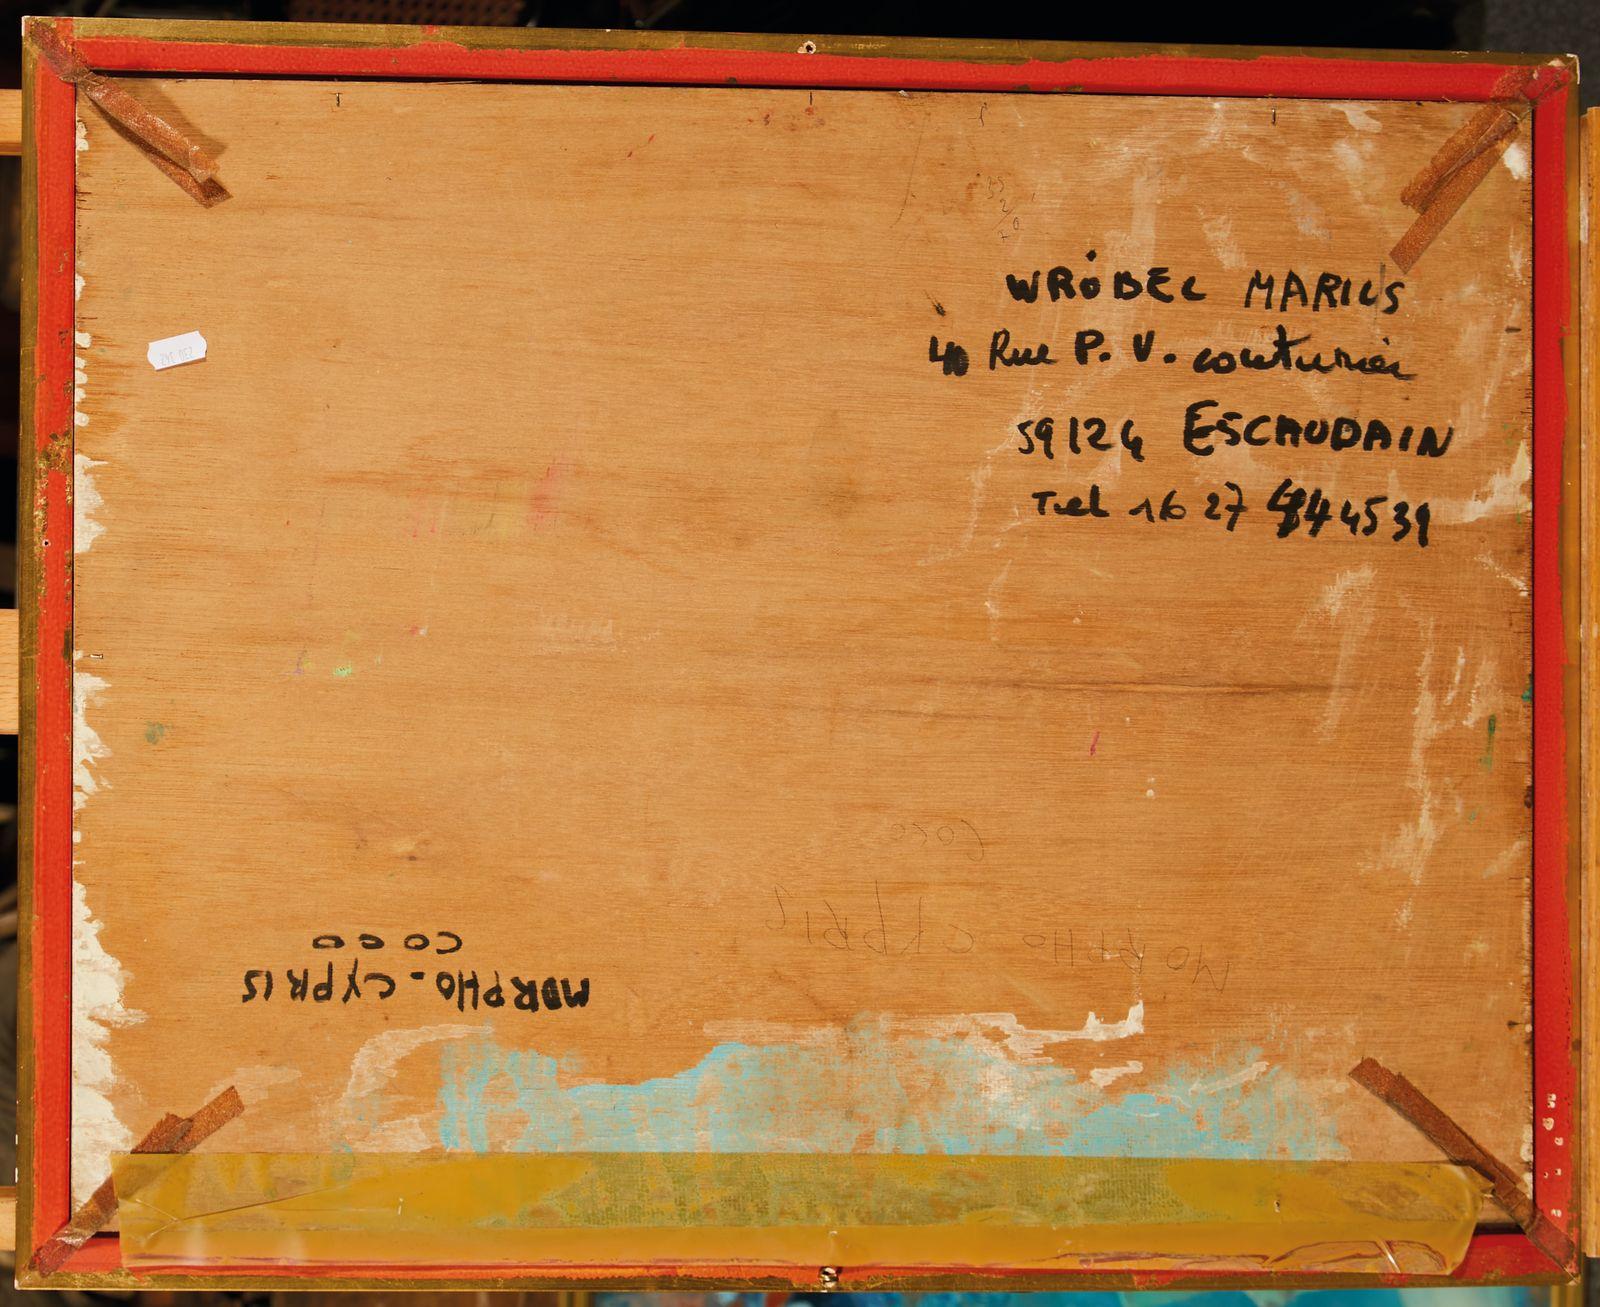 WRÓBEL MARIUS
40 Rue P. V. couturier
59124 ESCAUDAIN
Tel 16 27 44 45 39
COCO
MORPHO CYPRIS
COCO
MORPHO-CYPRIS